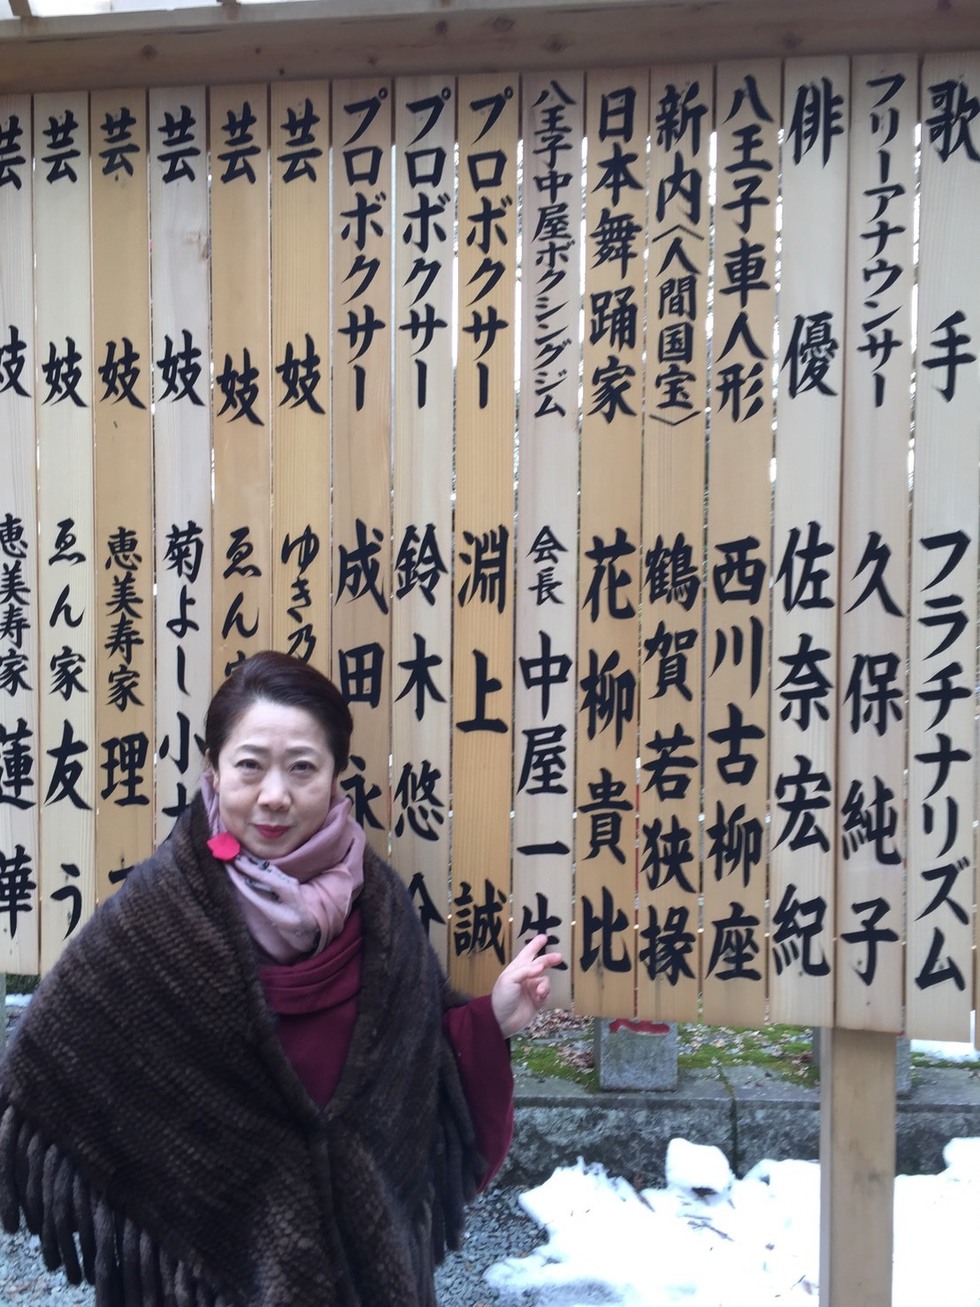 歌手 フラチナリズム
フリーアナウンサー 久保純子
俳優 佐奈宏紀
八王子車人形 西川古柳座
新内（人間国宝） 鶴賀若狭掾
日本舞踊家 花柳貴比
八王子中屋ボクシングジム 会長 中屋一生
プロボクサー 淵上誠
プロボクサー 鈴木悠介
プロボクサー 成田永
芸妓 ゆき乃
芸妓 ゑん家
芸妓 菊よし 小
芸妓 恵美寿家 理
芸妓 ゑん家 友う
芸妓 恵美寿家 蓮華